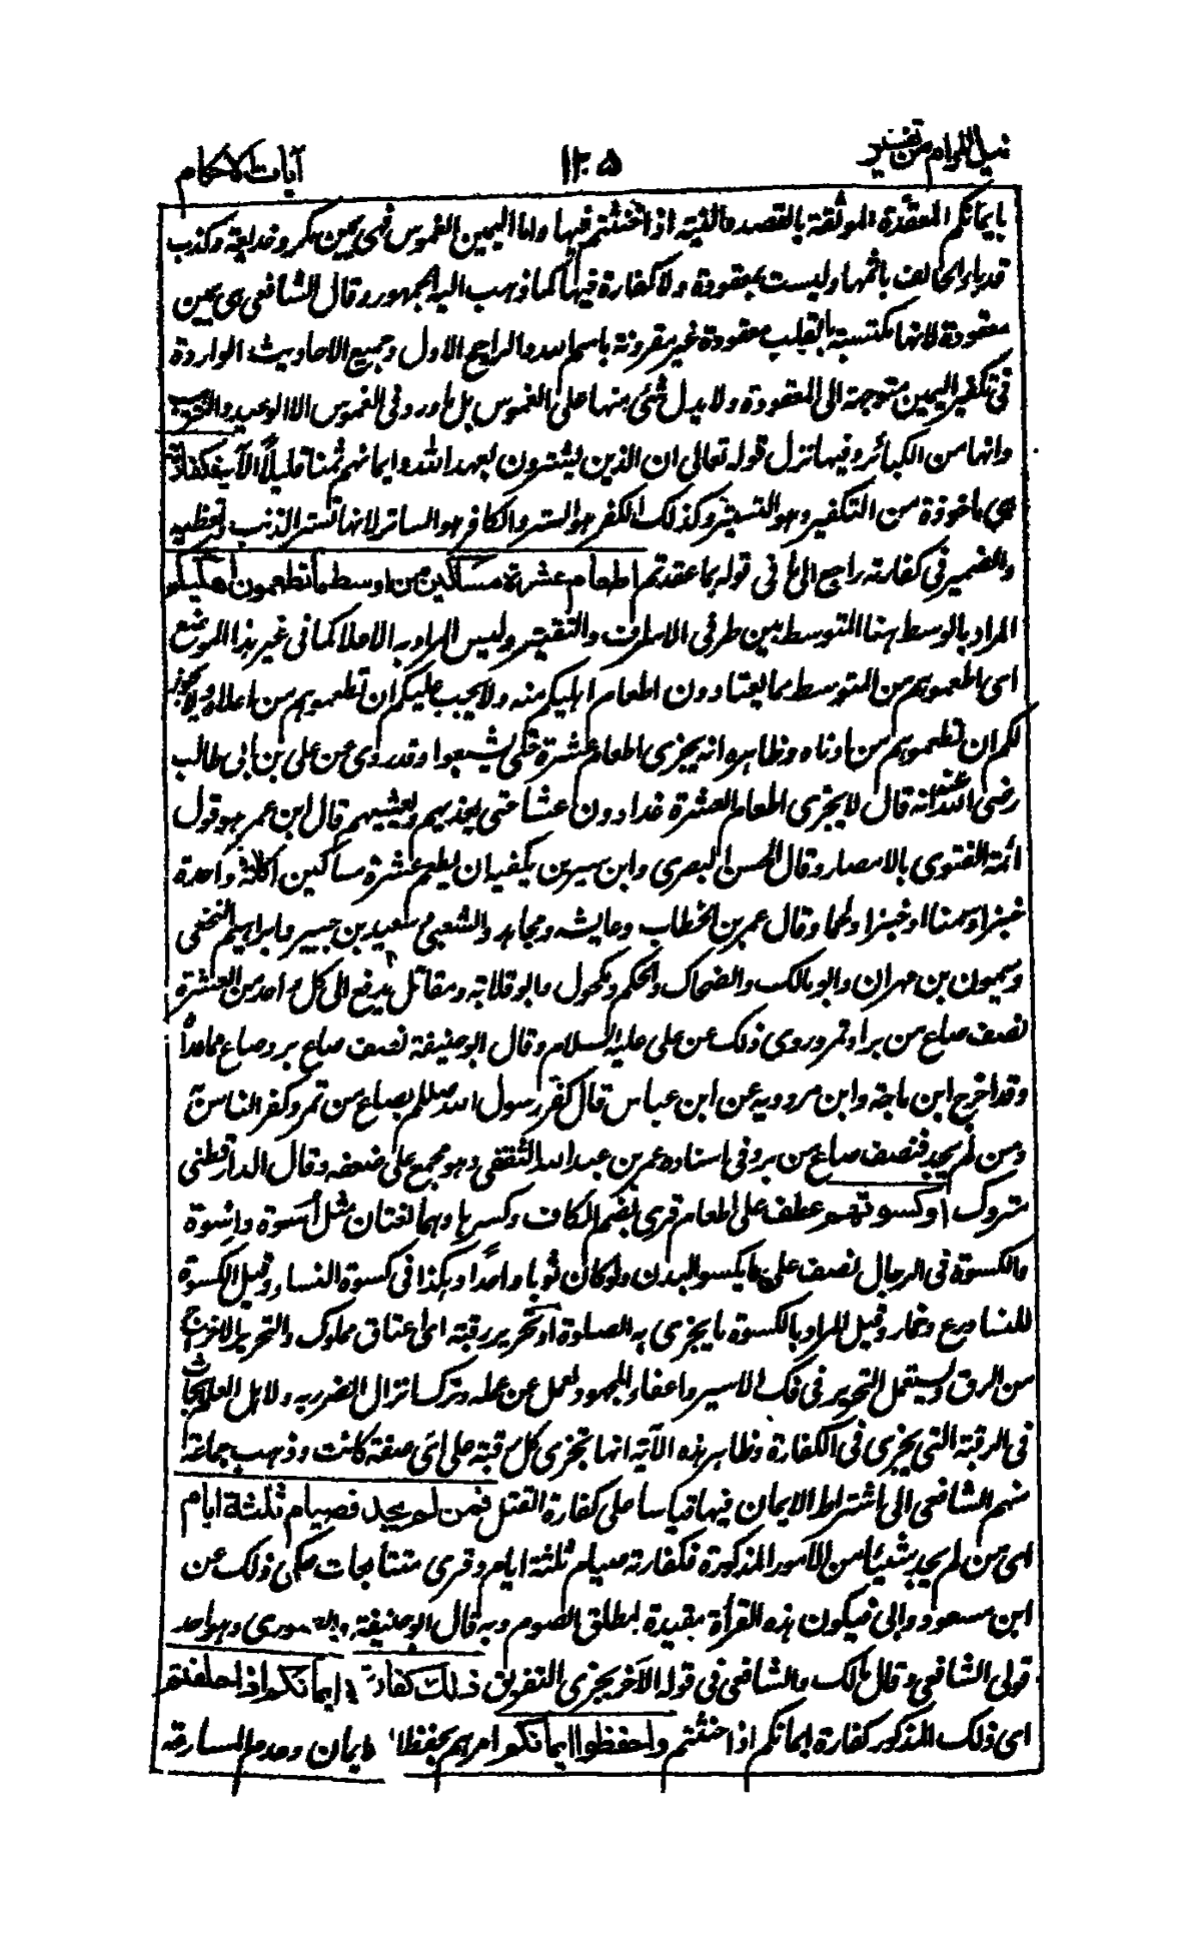 نيل المرام من تفسير ١٢٠٥ آيات الاحكام
بايمانكم المعقدة الموثقة بالقصد والنية اذا حنثتم فيها واما اليمين الغموس فهى يمين مكر وخديعة وكذب
قد باء الحالف باثمها وليست بمعقودة ولا كفارة فيها كما ذهب اليه الجمهور وقال الشافعى هى يمين
معقودة لانها مكتسبة بالقلب معقودة غير مقرونة باسم الله والراجح الاول وجميع الاحاديث الواردة
فى تكفير اليمين متوجهة الى المعقودة ولا يدل شئ منها على الغموس بل ما ورد فى الغموس الا الوعيد والترهيب
وانها من الكبائر وفيها نزل قوله تعالى ان الذين يشترون بعهد الله وايمانهم ثمنا قليلاً الآية فكفارته
هى ماخوذة من التكفير وهو التستير وكذلك الكفر هو الستر والكافر هو الساتر لانها تستر الذنب وتغطيه
والضمير فى كفارته راجع الى ما فى قوله بما عقدتم اطعام عشرة مساكين من اوسط ما تطعمون اهليكم
المراد بالوسط هنا المتوسط بين طرفى الاسراف والتقتير وليس المراد به الاعلا كما فى غير هذا الموضع
اى اطعموهم من المتوسط مما يعتادون اطعام اهليكم منه ولا يجب عليكم ان تطعموهم من اعلاه ولا يجوز
لكم ان تطعموهم من ادناه وظاهره انه يجزى اطعام عشرة حتى يشبعوا وقد روى عن على بن ابى طالب
رضى الله عنه انه قال لا يجزى اطعام العشرة غداء دون عشاء حتى يغذيهم ويعشيهم قال ابن عمر هو قول
ائمة الفتوى بالامصار وقال الحسن البصرى وابن سيرين يكفيه ان يطعم عشرة مساكين اكلة واحدة
خبزا وسمنا او خبزا ولحما وقال عمر بن الخطاب وعايشه ومجاهد والشعبى وسعيد بن جبير وابراهيم النخعى
وميمون بن مهران وابو مالك والضحاك والحكم ومكحول وابو قلابة ومقاتل يدفع الى كل واحد من العشرة
نصف صاع من بر او تمر وروى ذلك عن على عليه السلام وقال ابو حنيفة نصف صاع بر وصاع مما عداه
وقد اخرج ابن ماجة وابن مردويه عن ابن عباس قال كفر رسول الله صلعم بصاع من تمر وكفر الناس به
ومن لم يجد فنصف صاع من بر وفى اسناده عمر بن عبد الله الثقفى وهو مجمع على ضعفه وقال الدارقطنى
متروك او كسوتهم عطف على اطعام قرى بضم الكاف وكسرها وهما لغتان مثل أسوة وإسوة
والكسوة فى الرجال تصدق على ما يكسو البدن ولو كان ثوبا واحداً وهكذا فى كسوة النساء وقيل الكسوة
للنسا درع وخمار وقيل المراد بالكسوة ما يجزى به الصلوة او تحرير رقبة اى اعتاق مملوك والتحرير الاخراج
من الرق ويستعمل التحرير فى فك الاسير واعفاء المجهود بعمل عن عمله وترك انزال الضرر به ولاهل العلم ابحاث
فى الرقبة التى يجزى فى الكفارة وظاهر هذه الآية انها تجزى كل رقبة على اى صفة كانت وذهب جماعة
منهم الشافعى الى اشتراط الايمان فيها قياسا على كفارة القتل فمن لم يجد فصيام ثلثة ايام
اى من لم يجد شيئا من الامور المذكورة فكفارته صيام ثلثة ايام وقرى متتابعات حكى ذلك عن
ابن مسعود وابى فيكون هذه القرأة مقيدة لمطلق الصوم وبه قال ابو حنيفة والثورى وهو احد
قولى الشافعى وقال مالك والشافعى فى قوله الآخر يجزى التفريق ذلك كفارة ايمانكم اذا حلفتم
اى ذلك المذكور كفارة ايمانكم اذا حنثتم واحفظوا ايمانكم امرهم بحفظ الايمان وعدم المسارعة